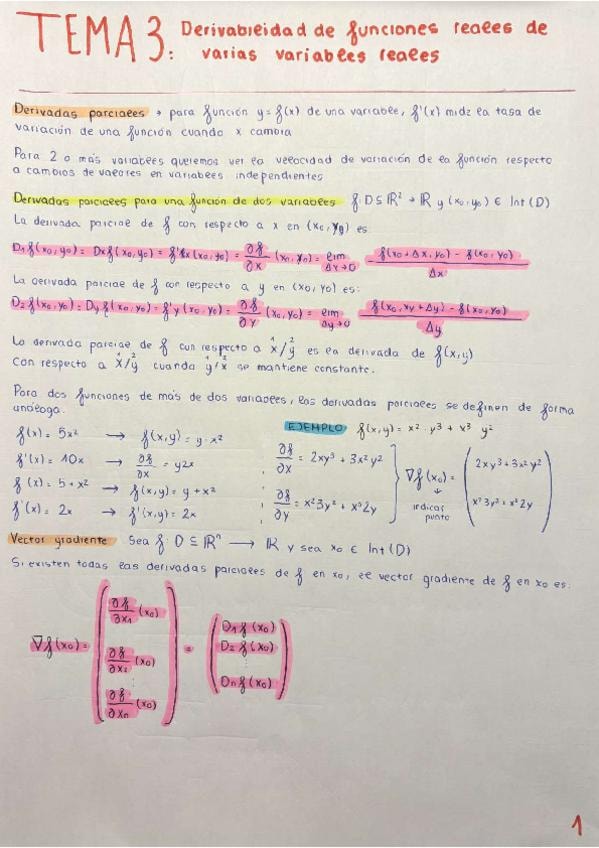 TEMA 3: Derivabilidad de funciones reales de
varias variables reales
Derivadas parciales → para función y = f(x) de una variable, f'(x) mide la tasa de
variación de una función cuando x cambia
Para 2 o más variables queremos ver la velocidad de variación de la función respecto
a cambios de valores en variables independientes
Derivadas parciales para una función de dos variables f: D ⊆ ℝ² → ℝ y (x₀, y₀) ∈ Int(D)
La derivada parcial de f con respecto a x en (x₀, y₀) es
D₁f(x₀, y₀) = Dxf(x₀, y₀) = f'x(x₀, y₀) = ∂f/∂x (x₀, y₀) = lim Δx→0 (f(x₀ + Δx, y₀) - f(x₀, y₀))/Δx
La derivada parcial de f con respecto a y en (x₀, y₀) es:
D₂f(x₀, y₀) = Dyf(x₀, y₀) = f'y(x₀, y₀) = ∂f/∂y (x₀, y₀) = lim Δy→0 (f(x₀, y₀ + Δy) - f(x₀, y₀))/Δy
La derivada parcial de f con respecto a x¹/y² es la derivada de f(x,y)
con respecto a x¹/y² cuando y¹/x² se mantiene constante.
Para dos funciones de más de dos variables, las derivadas parciales se definen de forma
análoga.
f(x) = 5x² → f(x,y) = y·x²
f'(x) = 10x → ∂f/∂x = y2x
f(x) = 5 + x² → f(x,y) = y + x²
f'(x) = 2x → f'(x,y) = 2x
EJEMPLO f(x,y) = x² · y³ + x³ y²
∂f/∂x = 2xy³ + 3x²y²
∂f/∂y = x²3y² + x³2y
∇f(x₀) = (2xy³ + 3x²y²
x²3y² + x³2y)
↓
indicar
punto
Vector gradiente Sea f: D ⊆ ℝⁿ → ℝ y sea x₀ ∈ Int(D)
Si existen todas las derivadas parciales de f en x₀, el vector gradiente de f en x₀ es:
∇f(x₀) = (∂f/∂x₁ (x₀)
∂f/∂x₂ (x₀)
⋮
∂f/∂xn (x₀)) = (D₁f(x₀)
D₂f(x₀)
⋮
Dnf(x₀))
1